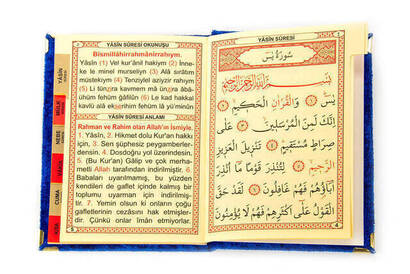 YÂSÎN SÛRESİ OKUNUŞU
Bismillâhirrahmânirrahıym.
Yâsîn (1) Vel kurânil hakiym (2) İnne-
ke le minel murseliyn (3) Alâ sırâtım
müstekıym (4) Tenziylel aziyzir rahıym
(5) Li tünzira kavmem mâ ünzira âbâ-
ühüm fehüm ğâfilûn (6) Le kad hakkal
kavlü alâ ekserihim fehüm lâ yü'minûn
YÂSÎN SÛRESİ ANLAMI
Rahman ve Rahim olan Allah'ın İsmiyle.
1. Yâsîn, 2. Hikmet dolu Kur'an hakkı
için, 3. Sen şüphesiz peygamberler-
densin. 4. Dosdoğru yol üzerindesin.
5. (Bu Kur'an) Gâlip ve çok merha-
metli Allah tarafından indirilmiştir. 6.
Babaları uyarılmamış, bu yüzden
kendileri de gaflet içinde kalmış bir
toplumu uyarman için indirilmiş-
tir. 7. Yemin olsun ki onların çoğu
gafletlerinin cezasını hak etmişler-
dir. Çünkü onlar îman etmiyorlar.
5
YÂSİN
MÜLK
NEBE
CUMA
YÂSÎN SÛRESİ
سُورَةُ يٰسٓ
بِسْمِ اللّٰهِ الرَّحْمٰنِ الرَّحِيمِ
يٰسٓ ﴿١﴾ وَالْقُرْاٰنِ الْحَكِيمِ ﴿٢﴾
اِنَّكَ لَمِنَ الْمُرْسَلِينَ ﴿٣﴾ عَلٰى
صِرَاطٍ مُسْتَقِيمٍ ﴿٤﴾ تَنْزِيلَ الْعَزِيزِ
الرَّحِيمِ ﴿٥﴾ لِتُنْذِرَ قَوْمًا مَا اُنْذِرَ
اٰبَاؤُهُمْ فَهُمْ غَافِلُونَ ﴿٦﴾ لَقَدْ حَقَّ
الْقَوْلُ عَلٰى اَكْثَرِهِمْ فَهُمْ لَا يُؤْمِنُونَ
4